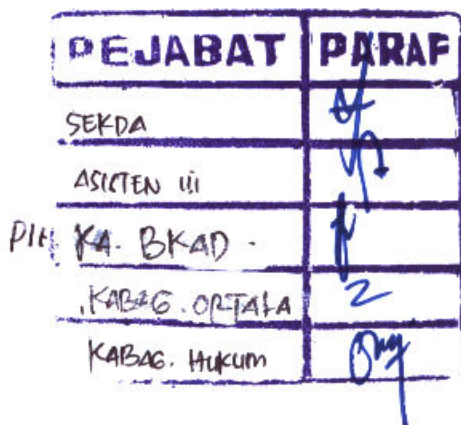 PEJABAT PARAF
SEKDA
ASISTEN III
Plh KA. BKAD.
KABAG. ORTALA
KABAG. HUKUM